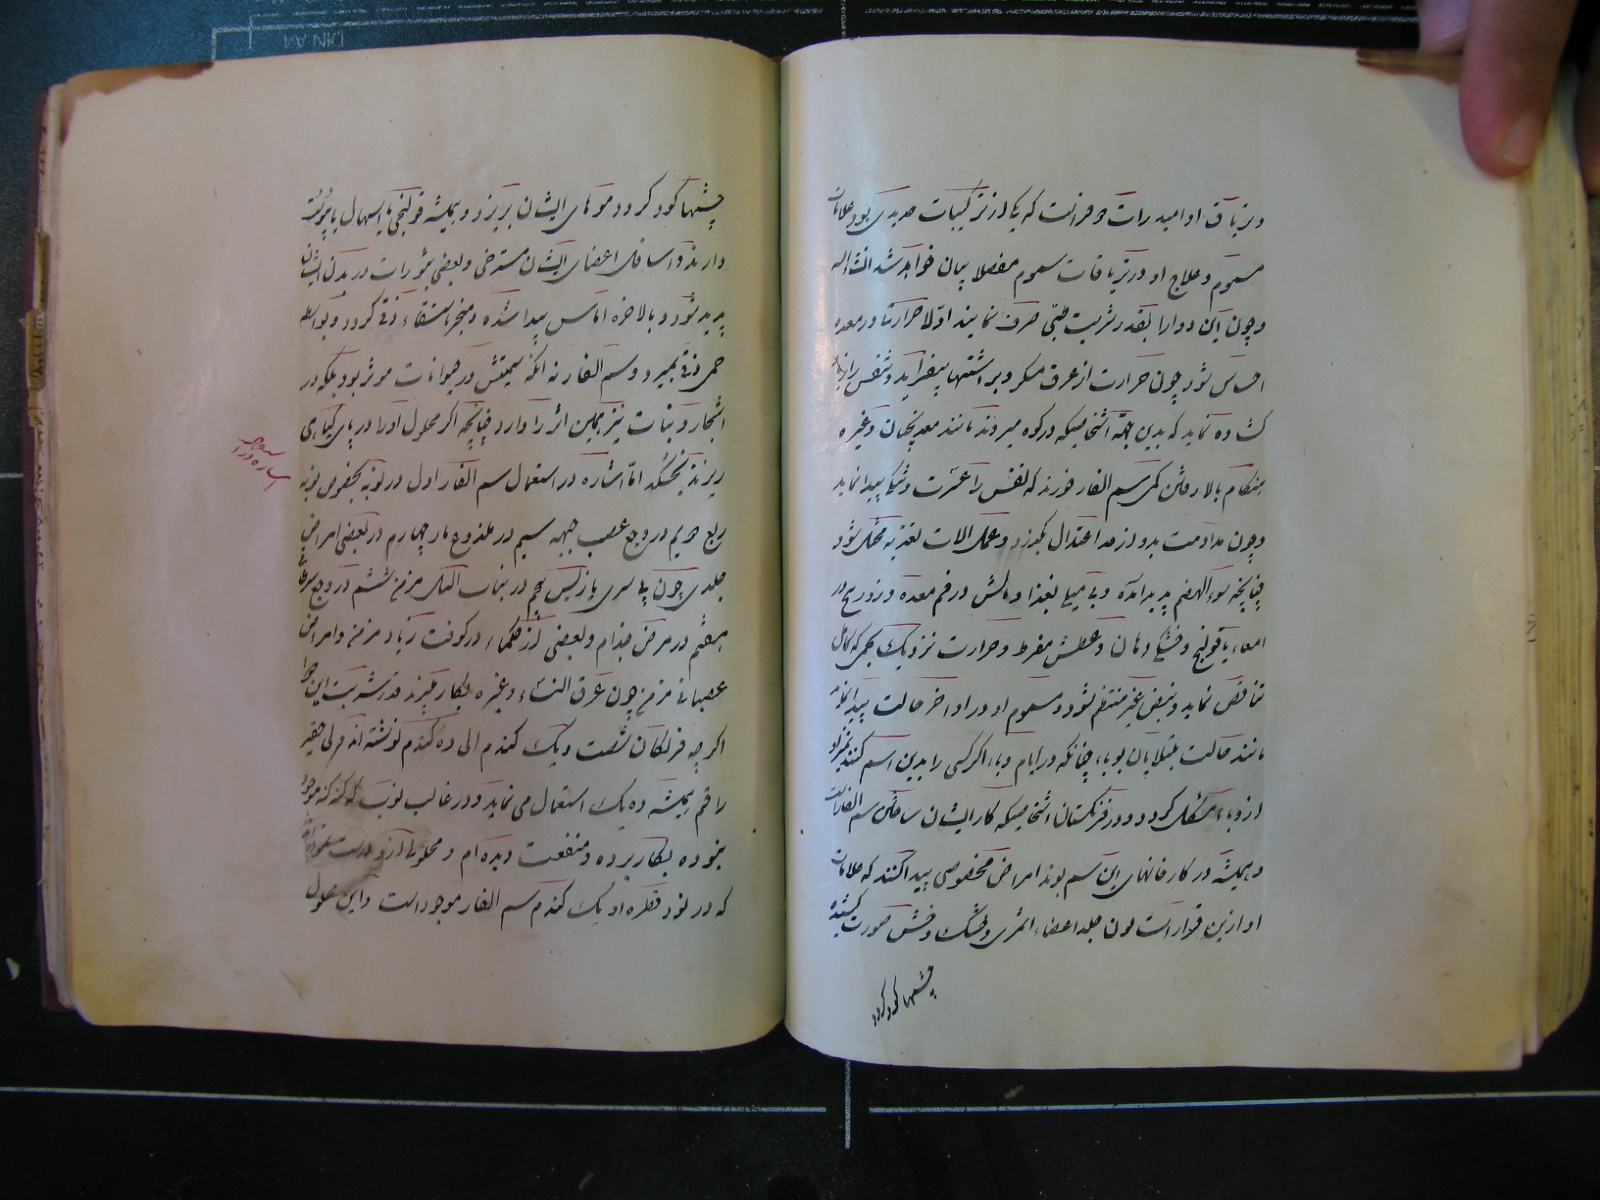 و تریاق او امیدرات دوفر است که یکی از ترکیبات حدیدی بود علامات
مسموم و علاج او در تریاقات سموم مفصلا بیان خواهد شد انشاء الله
و چون این دوا را بقدر شربت طبی صرف نمایند اولا حرارتی در معده
احساس شود چون حرارت از عرق مسکر و بر اشتها بیفزاید و تنفس را
کشاده نماید که بدین جهة اشخاصیکه در کوه میروند مانند معدنچیان و غیره
هنگام بالا رفتن کمی سم الفار خورند که تنفس را عسرت و تنگی پیدا نماید
و چون مداومت بدو از حد اعتدال بگذرد و عمل الات تغذیه مختل شود
چنانچه سوء الهضم پدید آمده و بی میلی بغذا و مالش در فم معده و زور ریح در
امعاء یا قولنج و خشکی دهان و عطش مفرط و حرارت نزدیک بحمی که کامل
تناقص نماید و نبض غیر منتظم شود و مسموم او در اواخر حالت پیدا نماید
مانند حالت مبتلایان بوبا، چنانکه در ایام وبا، اگر کسی را بدین سم کشند تمیز او
از وباء مشکل گردد و در فرنگستان اشخاصیکه کار ایشان ساختن سم الفار است
و همیشه در کارخانهای این سم بوند امراض مخصوصی پیدا کنند که علامات
او ازین قرار است لون جلد اعضاء اغبری و خشک و خشن صورت کشیده
چشمها کود گردد
چشمها کود گردد و موهای ایشان بریزد و همیشه قولنجی با اسهال یا یبوست
دارند و اسافل اعضای ایشان مسترخی و بعضی بثورات در بدن ایشان
پدید شود و بالاخره اماس پیدا شده و منجر باستسقاء زقی گردد و بواسطه
حمی دقی بمیرد و سم الفار نه آنکه سمیتش در حیوانات موثر بود بلکه در
اشجار و نبات نیز همین اثر را دارد چنانچه اگر محلول او را در پای گیاهی
ریزند بخشکد اما اشاره در استعمال سم الفار اول در نوبه بخصوص نوبه
ربع دویم در وجع عصب جبهه سیم در ملذوع مار چهارم در بعضی امراض
جلدی چون پلی سری یازیس پنجم در نبات اللیل مزمن ششم در وجع سرطان
هفتم در مرض جذام و بعضی از حکماء در کوفت زیاد مزمن و امراض
عصبانی مزمن چون عرق النساء و غیره بکار میبرند قدر شربت این دوا
اگرچه فرنگان شصت و یک گندم الی ده گندم نوشته اند ولی حقیر
راقم همیشه ده یک استعمال می نماید و در غالب نوب که کنه کنه موجود
نبوده بکار برده و منفعت دیده ام و محلولی از او درست نموده ام
که در نود قطره او یک گندم سم الفار موجود است و این محلول